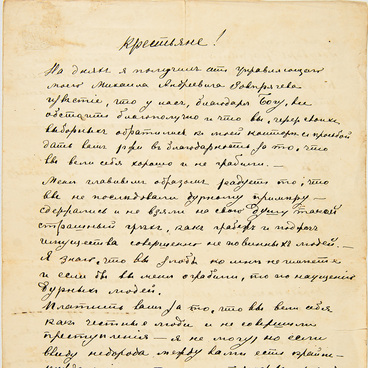 Крестьяне!
На дняхъ я получилъ отъ управляющаго
моего Михаила Андреевича
извѣстіе, что у васъ, благодаря Богу, все
обстоитъ благополучно и что вы, черезъ своихъ
выборныхъ обратились къ моей конторѣ съ просьбой
дать вамъ ржи въ благодарность за то, что
вы вели себя хорошо и не грабили. —
Меня главнымъ образомъ радуетъ то, что
вы не послѣдовали дурному примѣру —
сдержались и не взяли на свою душу такой
страшный грѣхъ, какъ грабежъ и поджогъ
имущества совершенно неповинныхъ людей. —
Я знаю, что вы злобы ко мнѣ не питаете
и если бъ вы меня ограбили, то по наущенію
дурныхъ людей.
Платить вамъ за то, что вы вели себя
какъ честные люди и не совершили
преступленія — я не могу, но если
ввиду недорода между вами есть крайне